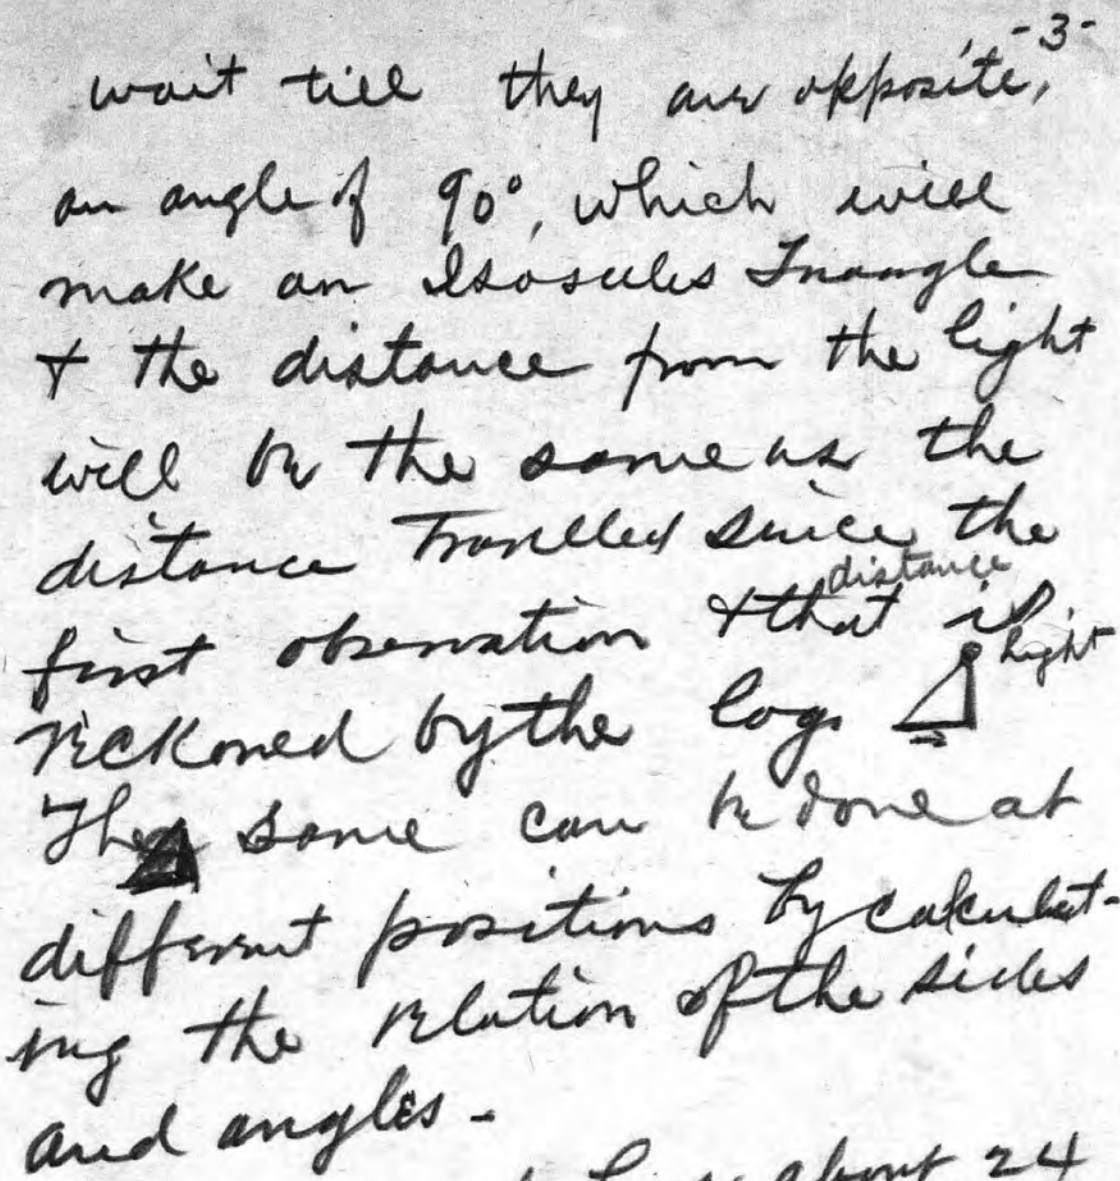 -3-
wait till they are opposite,
an angle of 90°, which will
make an Isosules Triangle
& the distance from the light
will be the same as the
distance Travelled since the
distance
first observation & that is
light
reckoned by the log.
The same can be done at
different positions by calculat-
ing the relation of the sides
and angles -
about 24